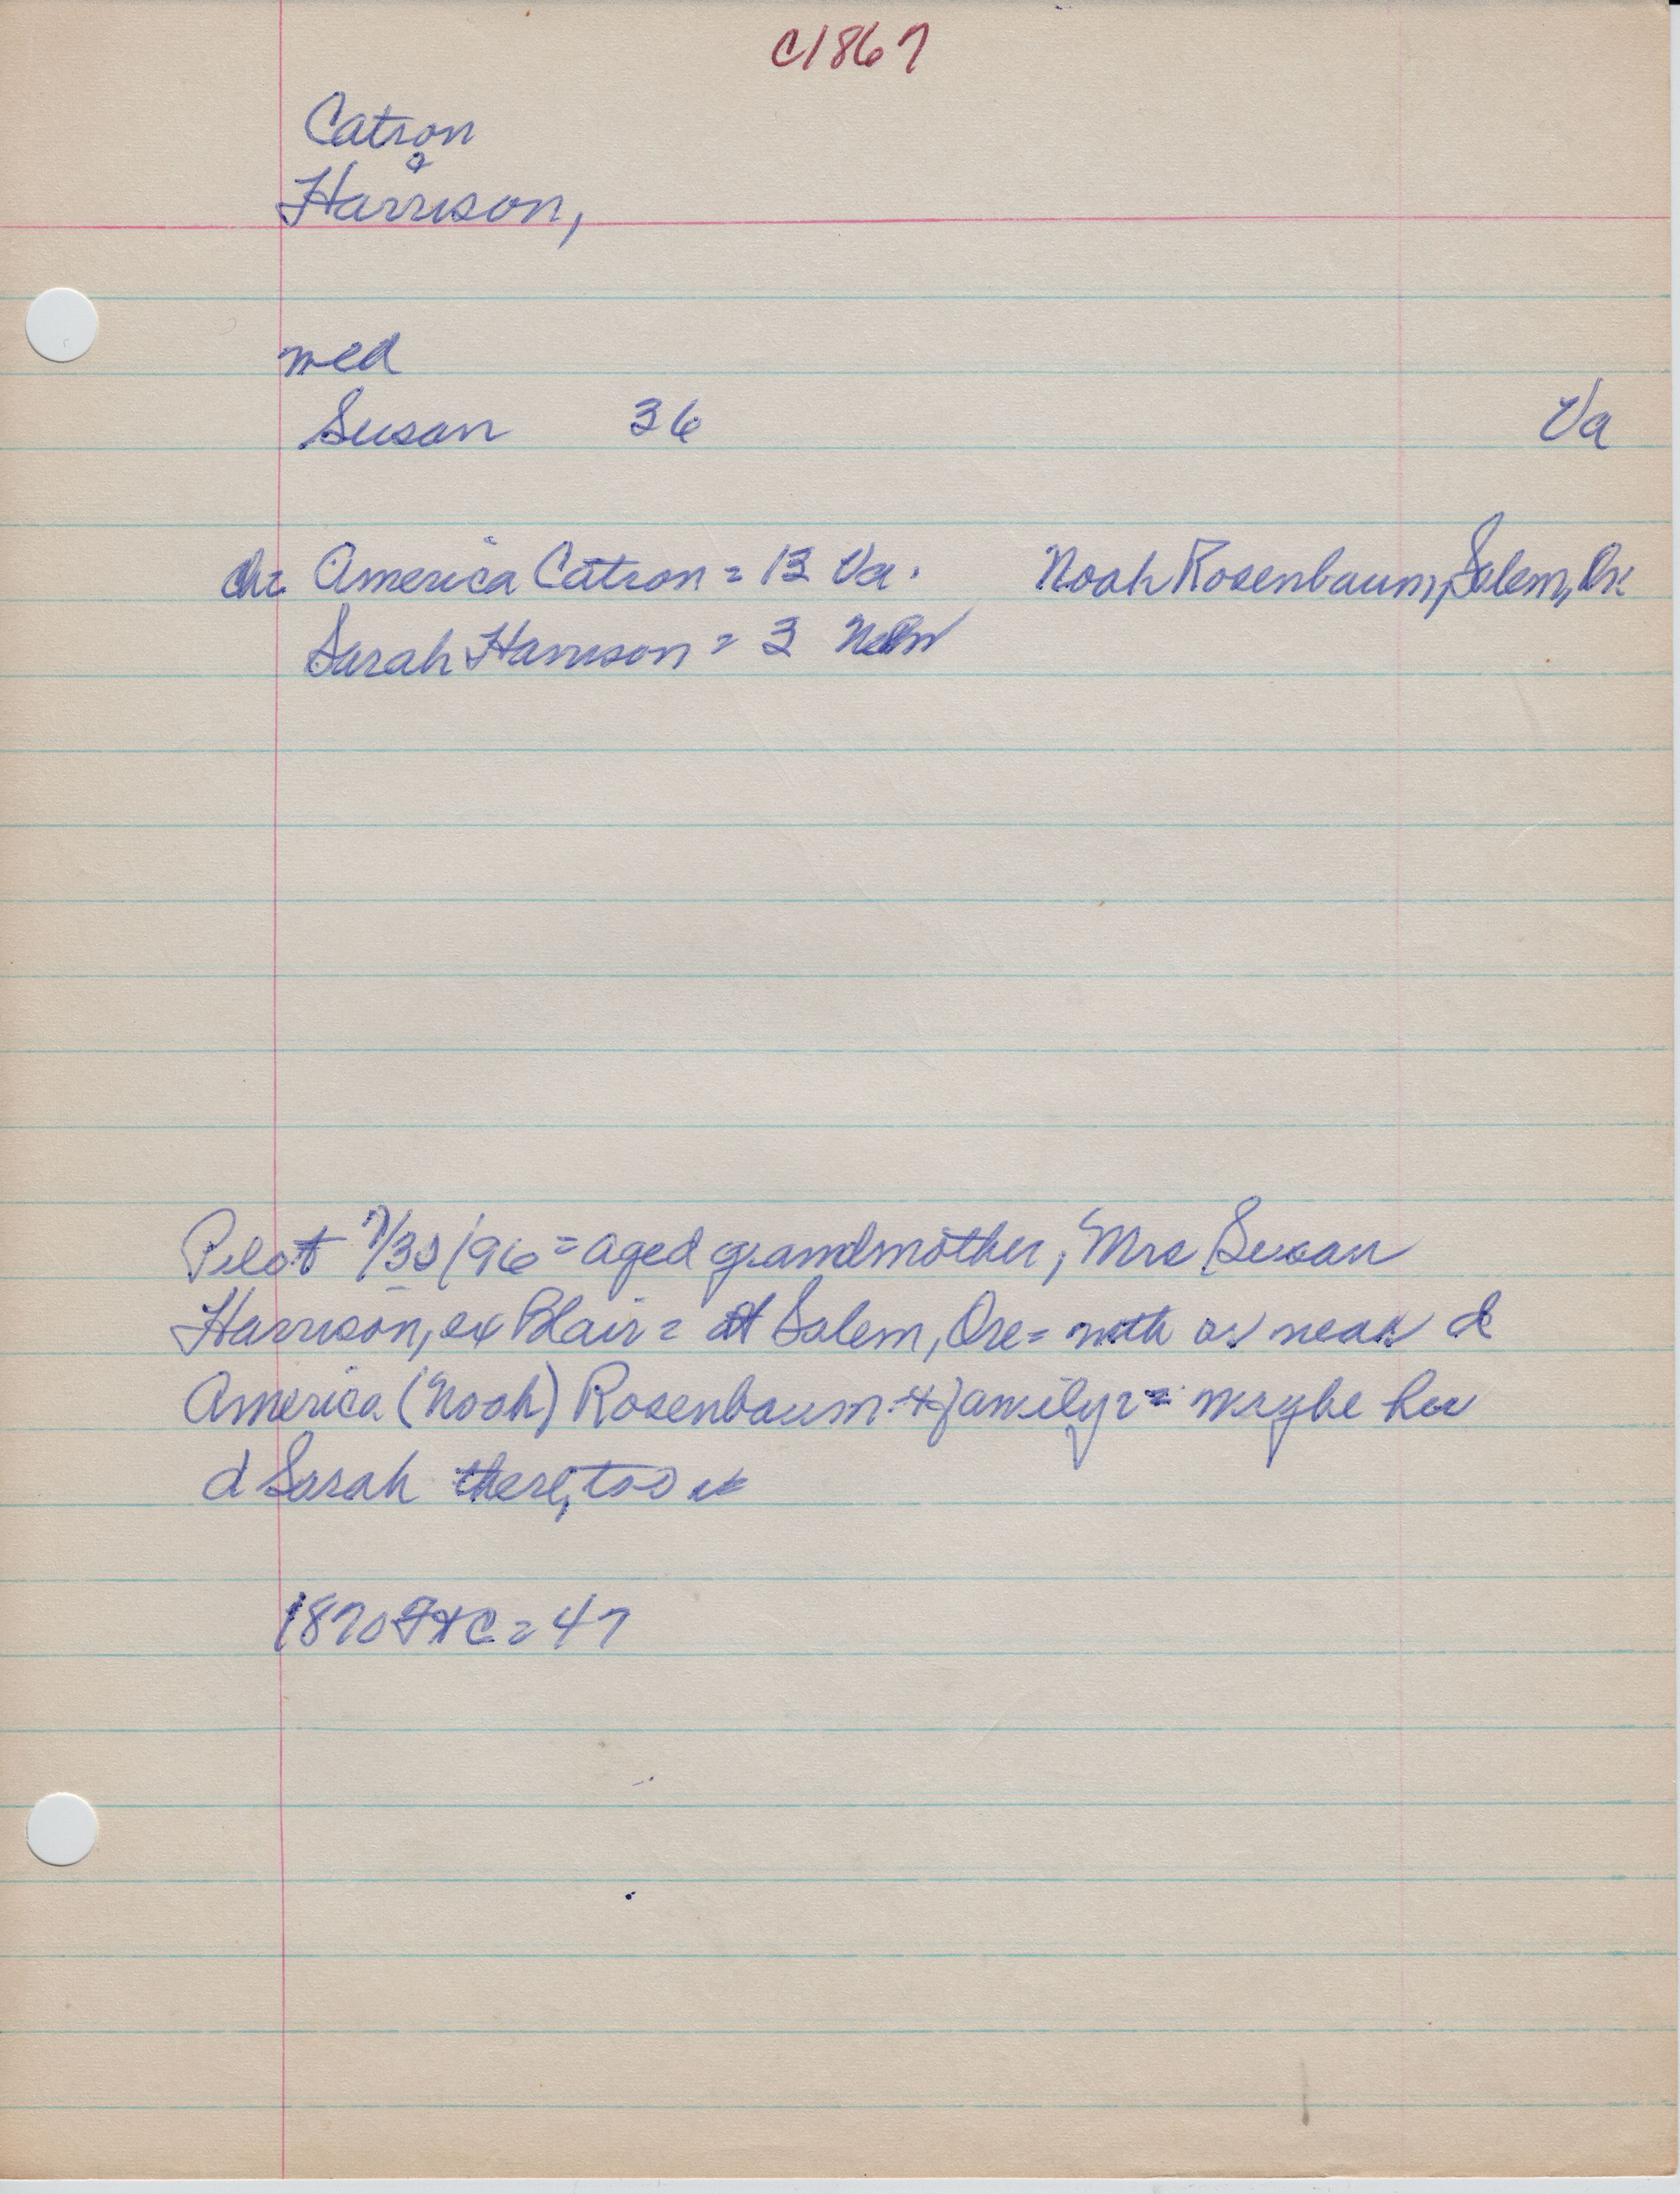 C1867
Catron
a
Harrison,
med
Susan 36 Va
Ch= America Catron = 13 Va. Noah Rosenbaum, Salem, Or.
Sarah Harrison = 3 Nebr
Pilot 7/30/96 = aged grandmother, Mrs Susan
Harrison, ex Blair = at Salem, Ore = with or near d
America (Noah) Rosenbaum & family = maybe her
d Sarah there, too
1870 = 47